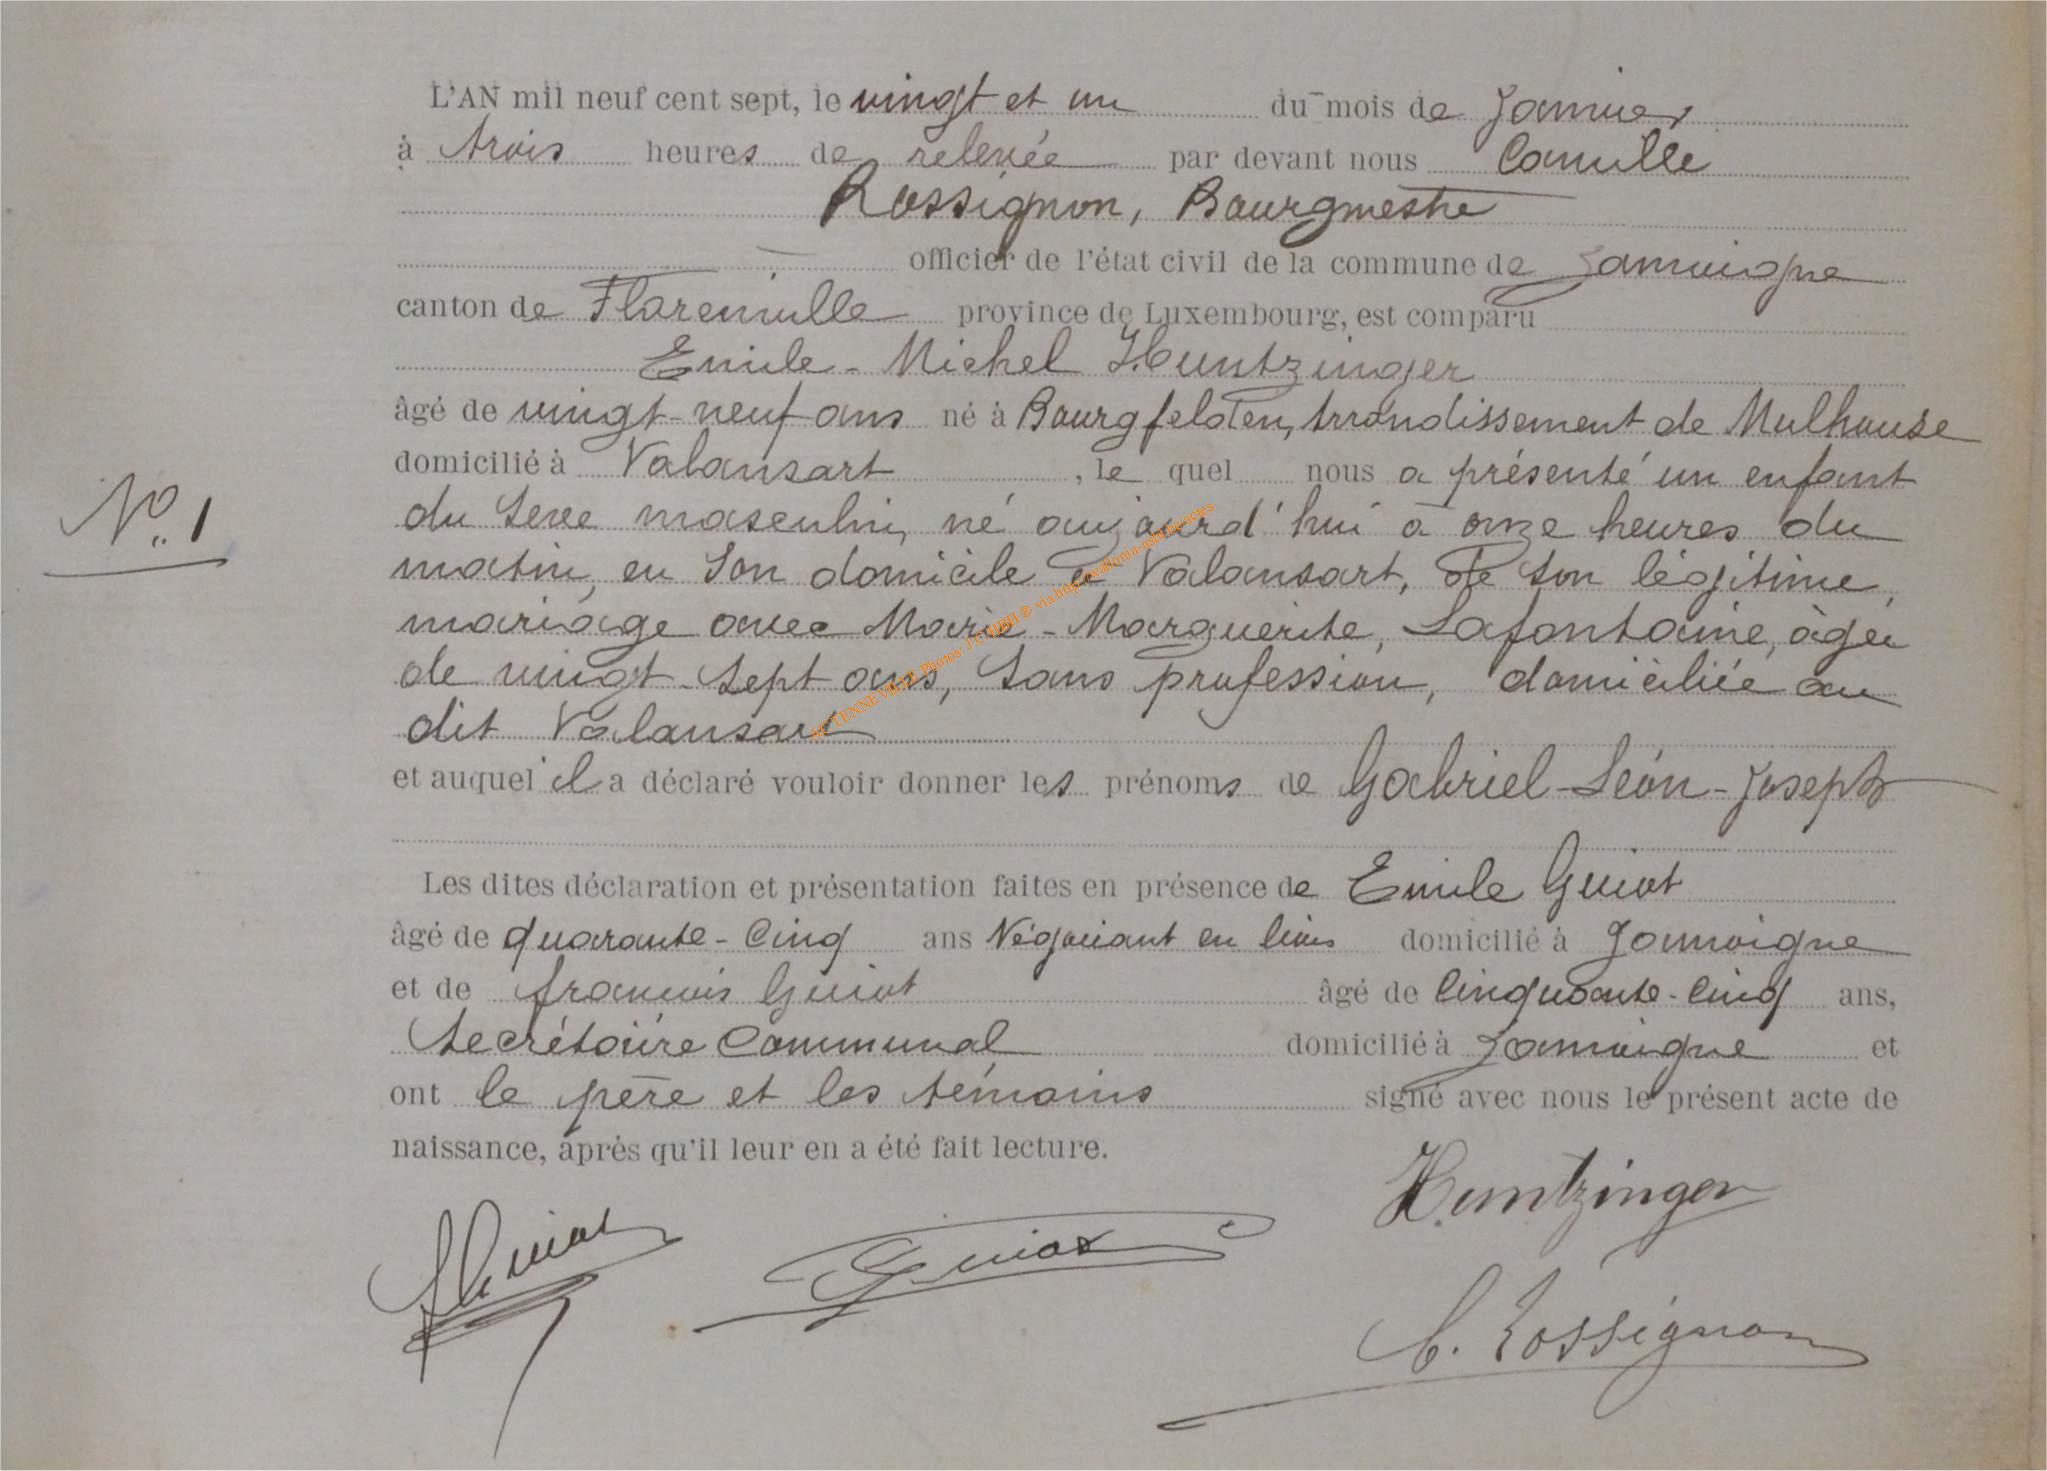 L'AN mil neuf cent sept, le vingt et un du mois de Janvier
à trois heures de relevée par devant nous Camille
Rossignon, Bourgmestre
officier de l'état civil de la commune de Jamoigne
canton de Florenville province de Luxembourg, est comparu
Emile-Michel Huntzinger
âgé de vingt-neuf ans né à Bourgfelden, Arrondissement de Mulhouse
domicilié à Valansart, le quel nous a présenté un enfant
N° 1
du sexe masculin, né aujourd'hui à onze heures du
matin, en son domicile à Valansart, de son légitime
mariage avec Marie-Marguerite, Lafontaine, âgée
de vingt-sept ans, sans profession, domiciliée au
dit Valansart
AC TENNEVILLE Photos J COMBI ® via http://wallonia-asbl.be/actes
et auquel il a déclaré vouloir donner les prénoms de Gabriel-Léon-Joseph
Les dites déclaration et présentation faites en présence de Emile Guiot
âgé de quarante-cinq ans Négociant en domicilié à Jamoigne
et de François Guiot âgé de cinquante-cinq ans,
Secrétaire Communal domicilié à Jamoigne et
ont le père et les témoins signé avec nous le présent acte de
naissance, après qu'il leur en a été fait lecture.
Huntzinger
Guiot Guiot
C. Rossignon